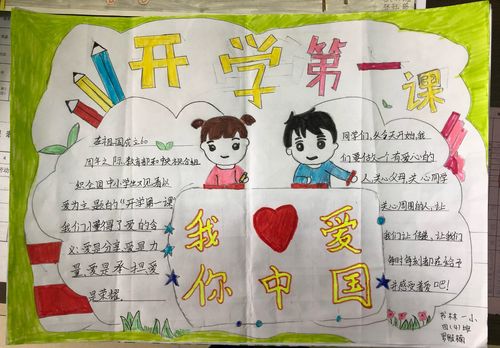 开学第一课
在祖国成立60
周年之际,教育部和中央电视台组
织全国中小学生观看以
爱为主题的“开学第一课”
我们懂得了爱的含
义:爱是分享爱是力
量爱是承担爱
是荣耀
同学们,从今天开始,我
们要做一个有爱心的
人,关心父母,关心同学
关心周围的人,让
我们让
让我们
每时每刻都在给予
并感受着爱吧!
我爱
你中国
书林一小
四(4)班